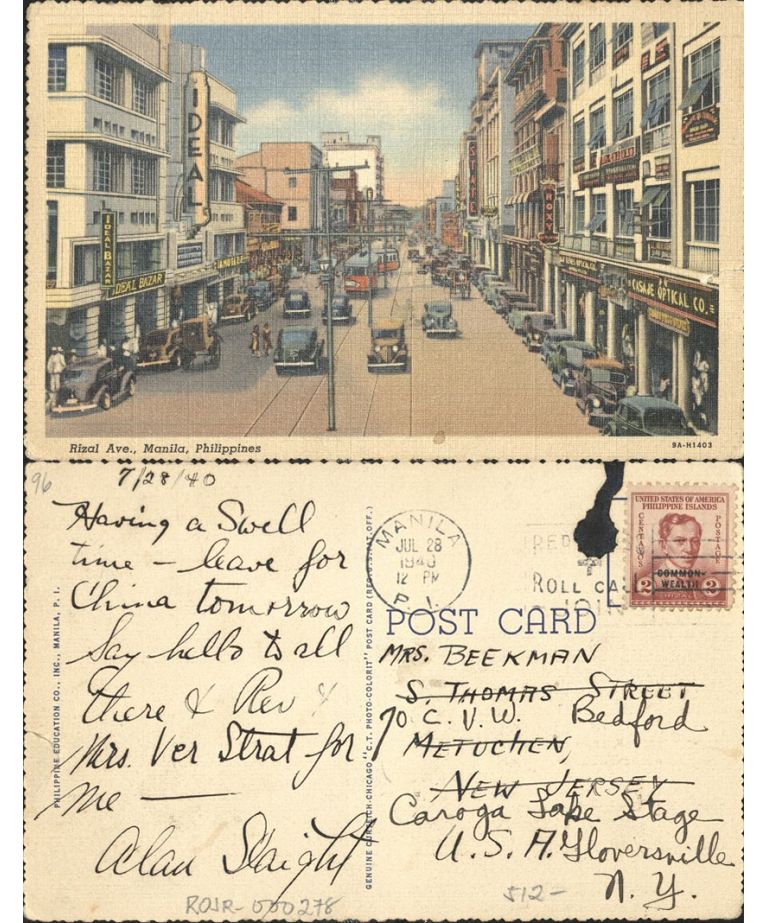 IDEAL
IDEAL BAZAR
IDEAL BAZAR
ROXY
OPTICAL CO.
Rizal Ave., Manila, Philippines
9A-H1403
96
7/28/40
Having a Swell
time – leave for
China tomorrow
Say hello to all
there & Rev &
Mrs. Ver Strat for
me —
Alan Slaight
ROJR-000278
PHILIPPINE EDUCATION CO., INC., MANILA, P. I.
GENUINE CURTEICH-CHICAGO "C.T. PHOTO-COLORIT" POST CARD (REG. U.S. PAT. OFF.)
MANILA
JUL 28
1940
12 PM
P. I.
RED
ROLL CALL
JOIN
UNITED STATES OF AMERICA
PHILIPPINE ISLANDS
CENTAVOS
POSTAGE
COMMON-
WEALTH
2 RIZAL 2
POST CARD
MRS. BEEKMAN
S. THOMAS STREET
% C. V. W. Bedford
METUCHEN,
NEW JERSEY
Caroga Lake Stage
U. S. A. Gloversville
N. Y.
512-